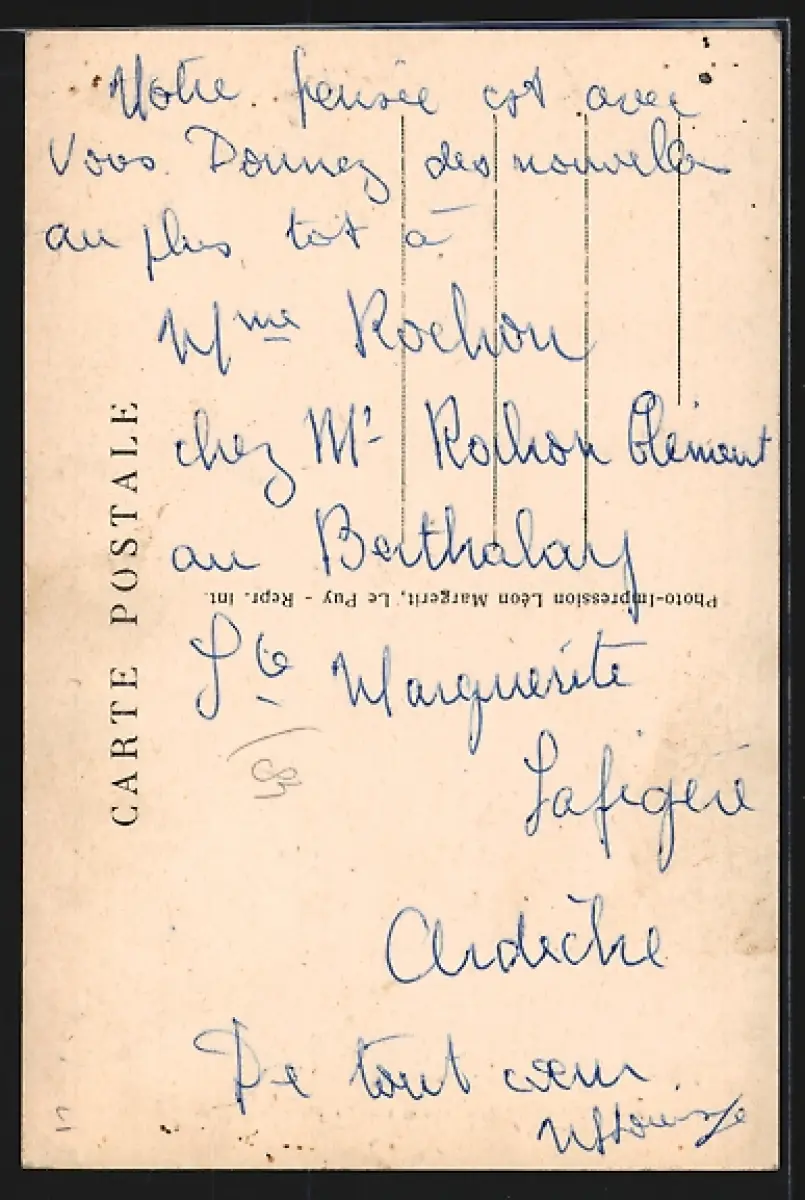 Notre pensée est avec
Vous. Donnez des nouvelles
au plus tôt à
Mme Rochon
chez Mr Rochon Clément
au Berthalay
Photo-Impression Léon Margerit, Le Puy - Repr. int.
Ste Marguerite
Lafigère
Ardèche
De tout cœur
CARTE POSTALE